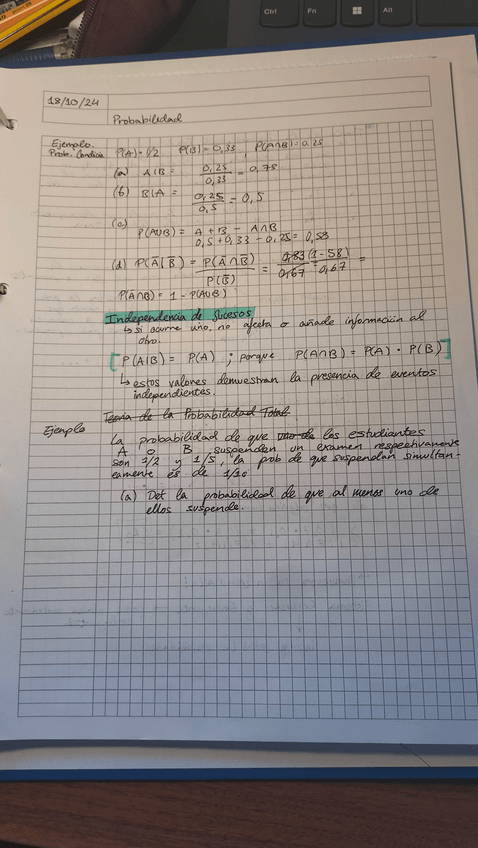 Ctrl Fn Alt
18/10/24
Probabilidad
Ejemplo.
Prob. Condicio P(A)=1/2 P(B)=0,33, P(A∩B)=0,25
(a) A|B = 0,25/0,33 = 0,75
(b) B|A = 0,25/0,5 = 0,5
(c)
P(A∪B) = A + B - A∩B
0,5 + 0,33 - 0,25 = 0,58
(d) P(A̅|B̅) = P(A̅∩B̅)/P(B̅) = 0,83(1-58)/0,67 = 0,67 =
P(A̅∩B̅) = 1 - P(A∪B)
Independencia de Sucesos
↳ si ocurre uno, no afecta o añade información al
otro.
[P(A|B) = P(A) ; porque P(A∩B) = P(A) · P(B)]
↳ estos valores demuestran la presencia de eventos
independientes.
Teoria de la Probabilidad Total.
Ejemplo
La probabilidad de que uno de los estudiantes
A o B suspendan un examen respectivamente
son 1/2 y 1/5, la prob de que suspendan simultan-
eamente es de 1/10
(a) Det la probabilidad de que al menos uno de
ellos suspende.